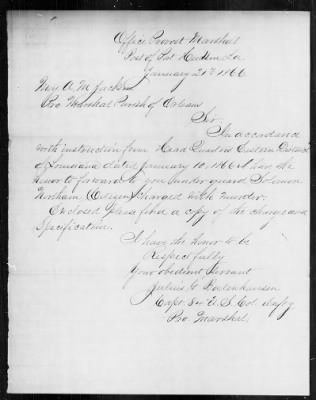 Office Provost Marshal
Post of Port Hudson La
January 21st 1866
Maj A. M. Jackson
Pro Marshal Parish of Orleans
Sir
In accordance
with instruction from Head Quarters Eastern District
of Louisiana dated January 10, 1866 I have the
honor to forward to you under guard Solomon
(Citizen) charged with murder.
Enclosed please find a copy of the charge and
Specification.
I have the honor to be
Respectfully
Your obedient Servant
Julius G.
Capt. 84 U.S. Col. Infty
Pro Marshal